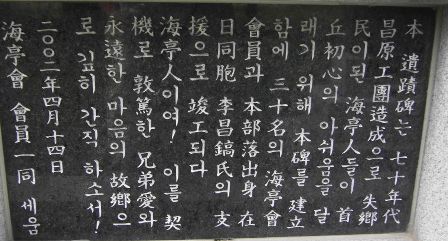 本 遺蹟碑는 七十年代
昌原工團造成으로 失鄕
民이된 海亭人들이 首
丘初心의 아쉬움을 달
래기 위해 本碑를 建立
함에 三十名의 海亭會
會員과 本部落出身 在
日同胞 李昌鎬氏의 支
援으로 竣工되다
海亭人이여! 이를 契
機로 敦篤한 兄弟愛와
永遠한 마음의 故鄕으
로 깊히 간직 하소서!
二〇〇二年四月十四日
海亭會 會員一同 세움